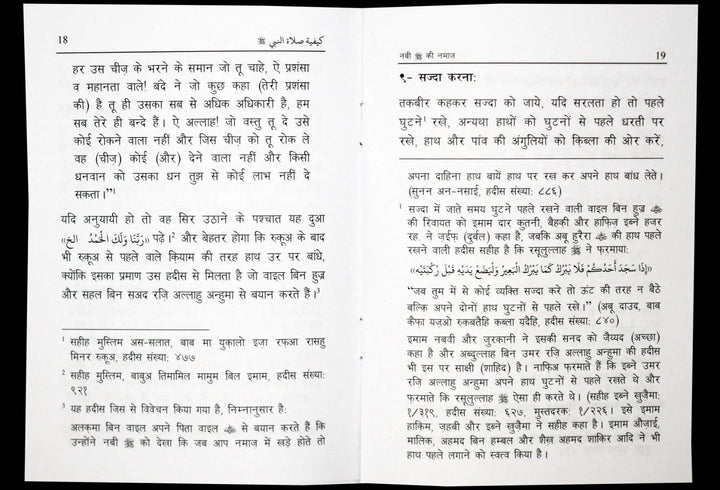 18 كيفية صلاة النبي ﷺ
हर उस चीज़ के भरने के समान जो तू चाहे, ऐ प्रशंसा
व महानता वाले! बंदे ने जो कुछ कहा (तेरी प्रशंसा
की) है तू ही उसका सब से अधिक अधिकारी है, हम
सब तेरे ही बन्दे हैं। ऐ अल्लाह! जो वस्तु तू दे उसे
कोई रोकने वाला नहीं और जिस चीज़ को तू रोक ले
वह (चीज़) कोई (और) देने वाला नहीं और किसी
धनवान को उसका धन तुझ से कोई लाभ नहीं दे
सकता।”¹
यदि अनुयायी हो तो वह सिर उठाने के पश्चात यह दुआ
«رَبَّنَا وَلَكَ الْحَمْدُ الخ» पढ़े।² और बेहतर होगा कि रुकूअ के बाद
भी रुकूअ से पहले वाले क़ियाम की तरह हाथ उर पर बांधे,
क्योंकि इसका प्रमाण उस हदीस से मिलता है जो वाइल बिन हुज्र
और सहल बिन सअद रज़ि अल्लाहु अन्हुमा से बयान करते हैं।³
¹ सहीह मुस्लिम अस-सलात, बाब मा युक़ालो इज़ा रफ़आ रासहु
मिनर रुकूअ, हदीस संख्या: ४७७
² सहीह मुस्लिम, बाबुअ तिमामिल मामुम बिल इमाम, हदीस संख्या:
९२१
³ यह हदीस जिस से विवेचन किया गया है, निम्नानुसार है:
अलक़मा बिन वाइल अपने पिता वाइल से बयान करते हैं कि
उन्होंने नबी ﷺ को देखा कि जब आप नमाज़ में खड़े होते तो
नबी ﷺ की नमाज़ 19
९- सज्दा करना:
तकबीर कहकर सज्दा को जाये, यदि सरलता हो तो पहले
घुटने¹ रखे, अन्यथा हाथों को घुटनों से पहले धरती पर
रखे, हाथ और पांव की अंगुलियों को क़िब्ला की ओर करें,
अपना दाहिना हाथ बायें हाथ पर रख कर अपने हाथ बांध लेते।
(सुनन अन-नसाई, हदीस संख्या: ८८६)
¹ सज्दा में जाते समय घुटने पहले रखने वाली वाइल बिन हुज्र
की रिवायत को इमाम दार कुतनी, बैहकी और हाफ़िज़ इब्ने हजर
रह. ने जईफ (दुर्बल) कहा है, जबकि अबू हुरैरा की हाथ पहले
रखने वाली हदीस सहीह है कि रसूलुल्लाह ﷺ ने फरमाया:
«إِذَا سَجَدَ أَحَدُكُمْ فَلَا يَبْرُكْ كَمَا يَبْرُكُ الْبَعِيرُ وَلْيَضَعْ يَدَيْهِ قَبْلَ رُكْبَتَيْهِ»
“जब तुम में से कोई व्यक्ति सज्दा करे तो ऊंट की तरह न बैठे
बल्कि अपने दोनों हाथ घुटनों से पहले रखे।” (अबू दाउद, बाब
कैफा यज़ओ रुकबतैहि कब्ला यदैहि, हदीस संख्या: ८४०)
इमाम नववी और जुरकानी ने इसकी सनद को जैय्यद (अच्छा)
कहा है और अब्दुल्लाह बिन उमर रज़ि अल्लाहु अन्हुमा की हदीस
भी इस पर साक्षी (शाहिद) है। नाफिअ फरमाते हैं कि इब्ने उमर
रज़ि अल्लाहु अन्हुमा अपने हाथ घुटनों से पहले रखते थे और
फरमाते कि रसूलुल्लाह ﷺ ऐसा ही करते थे। (सहीह इब्ने खुज़ैमा:
१/३१९, हदीस संख्या: ६२७, मुस्तदरक: १/२२६। इसे इमाम
हाकिम, ज़हबी और इब्ने खुज़ैमा ने सहीह कहा है। इमाम औज़ाई,
मालिक, अहमद बिन हम्बल और शैख अहमद शाकिर आदि ने भी
हाथ पहले लगाने को स्वत्व किया है।